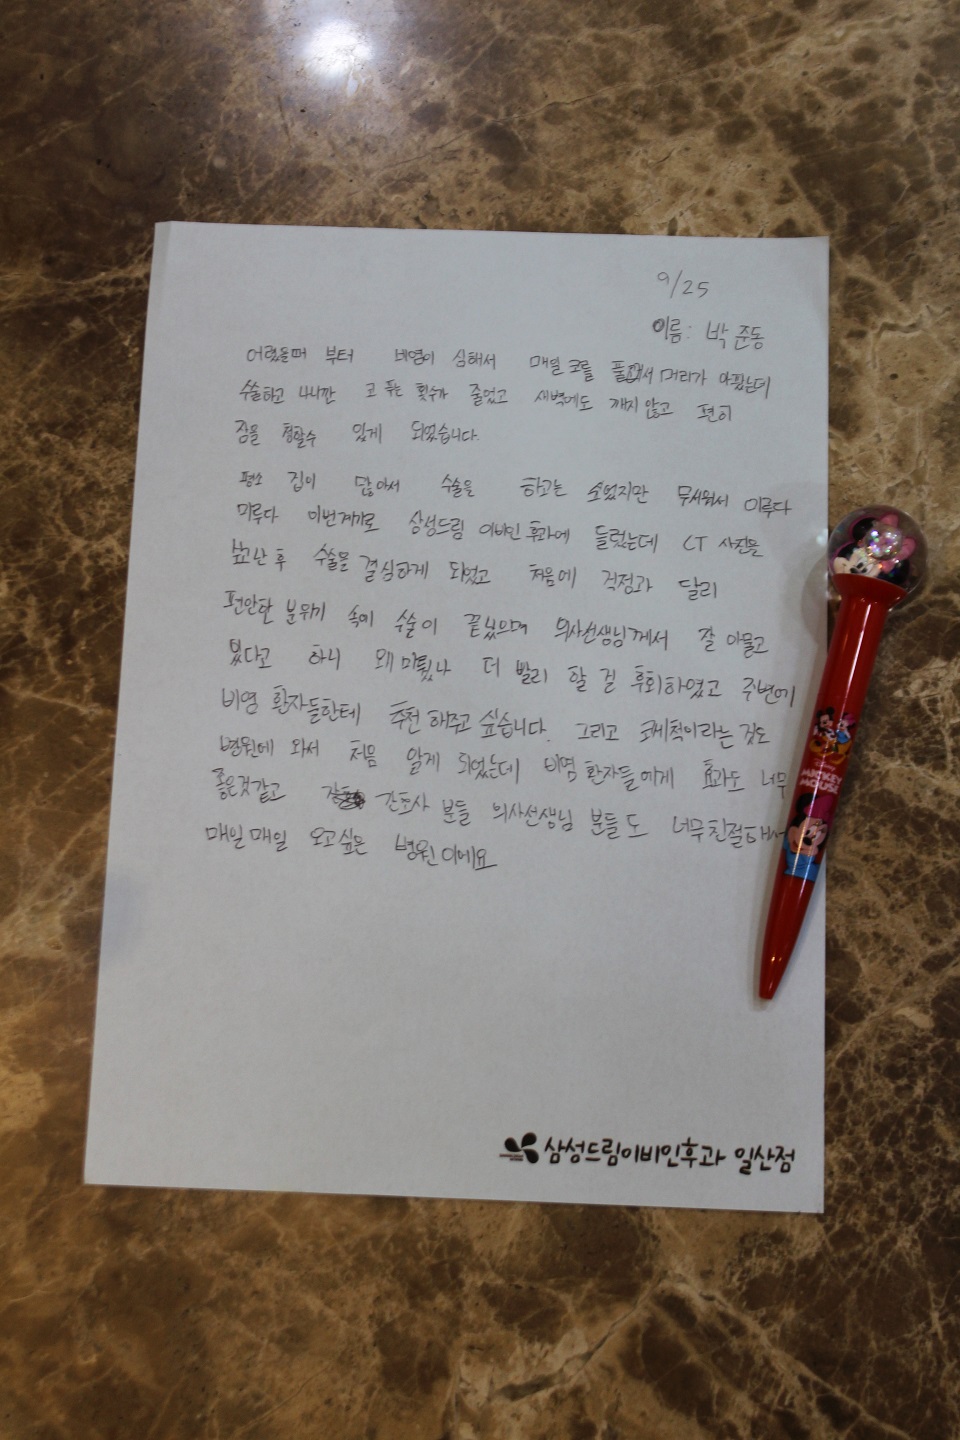 9/25
이름: 박준동
어렸을때 부터 비염이 심해서 매일 코를 풀면서 머리가 아팠는데
수술하고 나니깐 코 푸는 횟수가 줄었고 새벽에도 깨지 않고 편히
잠을 청할수 있게 되었습니다.
평소 집이 많아서 수술을 하고는 싶었지만 무서워서 미루다
미루다 이번계기로 삼성드림 이비인후과에 들렀는데 CT 사진을
보고난 후 수술을 결심하게 되었고 처음에 걱정과 달리
편안한 분위기 속에 수술이 끝났으며 의사선생님께서 잘 아물고
있다고 하니 왜 미뤘나 더 빨리 할 걸 후회하였고 주변에
비염 환자들한테 추천 해주고 싶습니다. 그리고 코세척이라는 것도
병원에 와서 처음 알게 되었는데 비염 환자들에게 효과도 너무
좋은것같고 간호사 분들 의사선생님 분들도 너무 친절해서
매일매일 오고싶은 병원이에요
삼성드림이비인후과 일산점
MICKEY
MOUSE